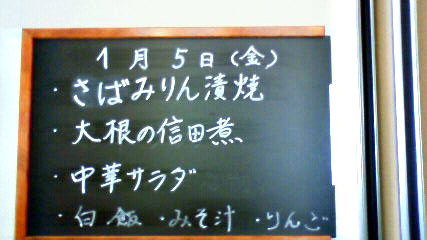 1月5日(金)
・さばみりん漬焼
・大根の信田煮
・中華サラダ
・白飯 ・みそ汁 ・りんご